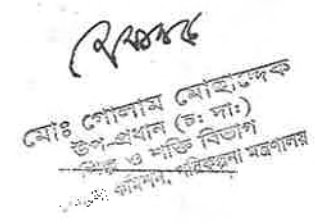 মোঃ গোলাম মোছাদ্দেক
উপ-প্রধান (চঃ দাঃ)
শিল্প ও শক্তি বিভাগ
কমিশন, পরিকল্পনা মন্ত্রণালয়